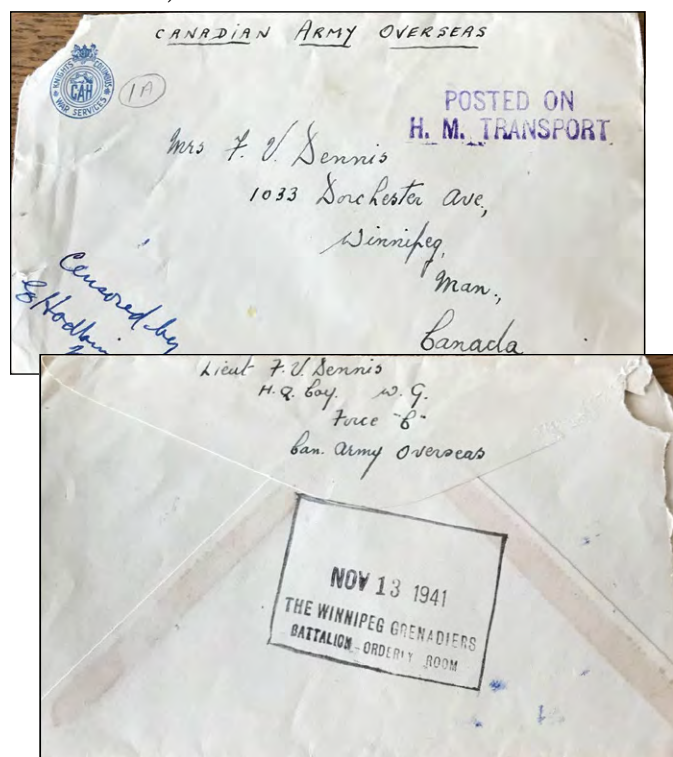 CANADIAN ARMY OVERSEAS
KNIGHTS COLUMBUS
CAH
WAR SERVICES
1A
POSTED ON
H. M. TRANSPORT
Mrs F. V. Dennis
1033 Dorchester Ave,
Winnipeg,
Man.,
Canada
Censored by
Lieut F. V. Dennis
H.Q. Coy. W. G.
Force "C"
Can. Army Overseas
NOV 13 1941
THE WINNIPEG GRENADIERS
BATTALION - ORDERLY ROOM